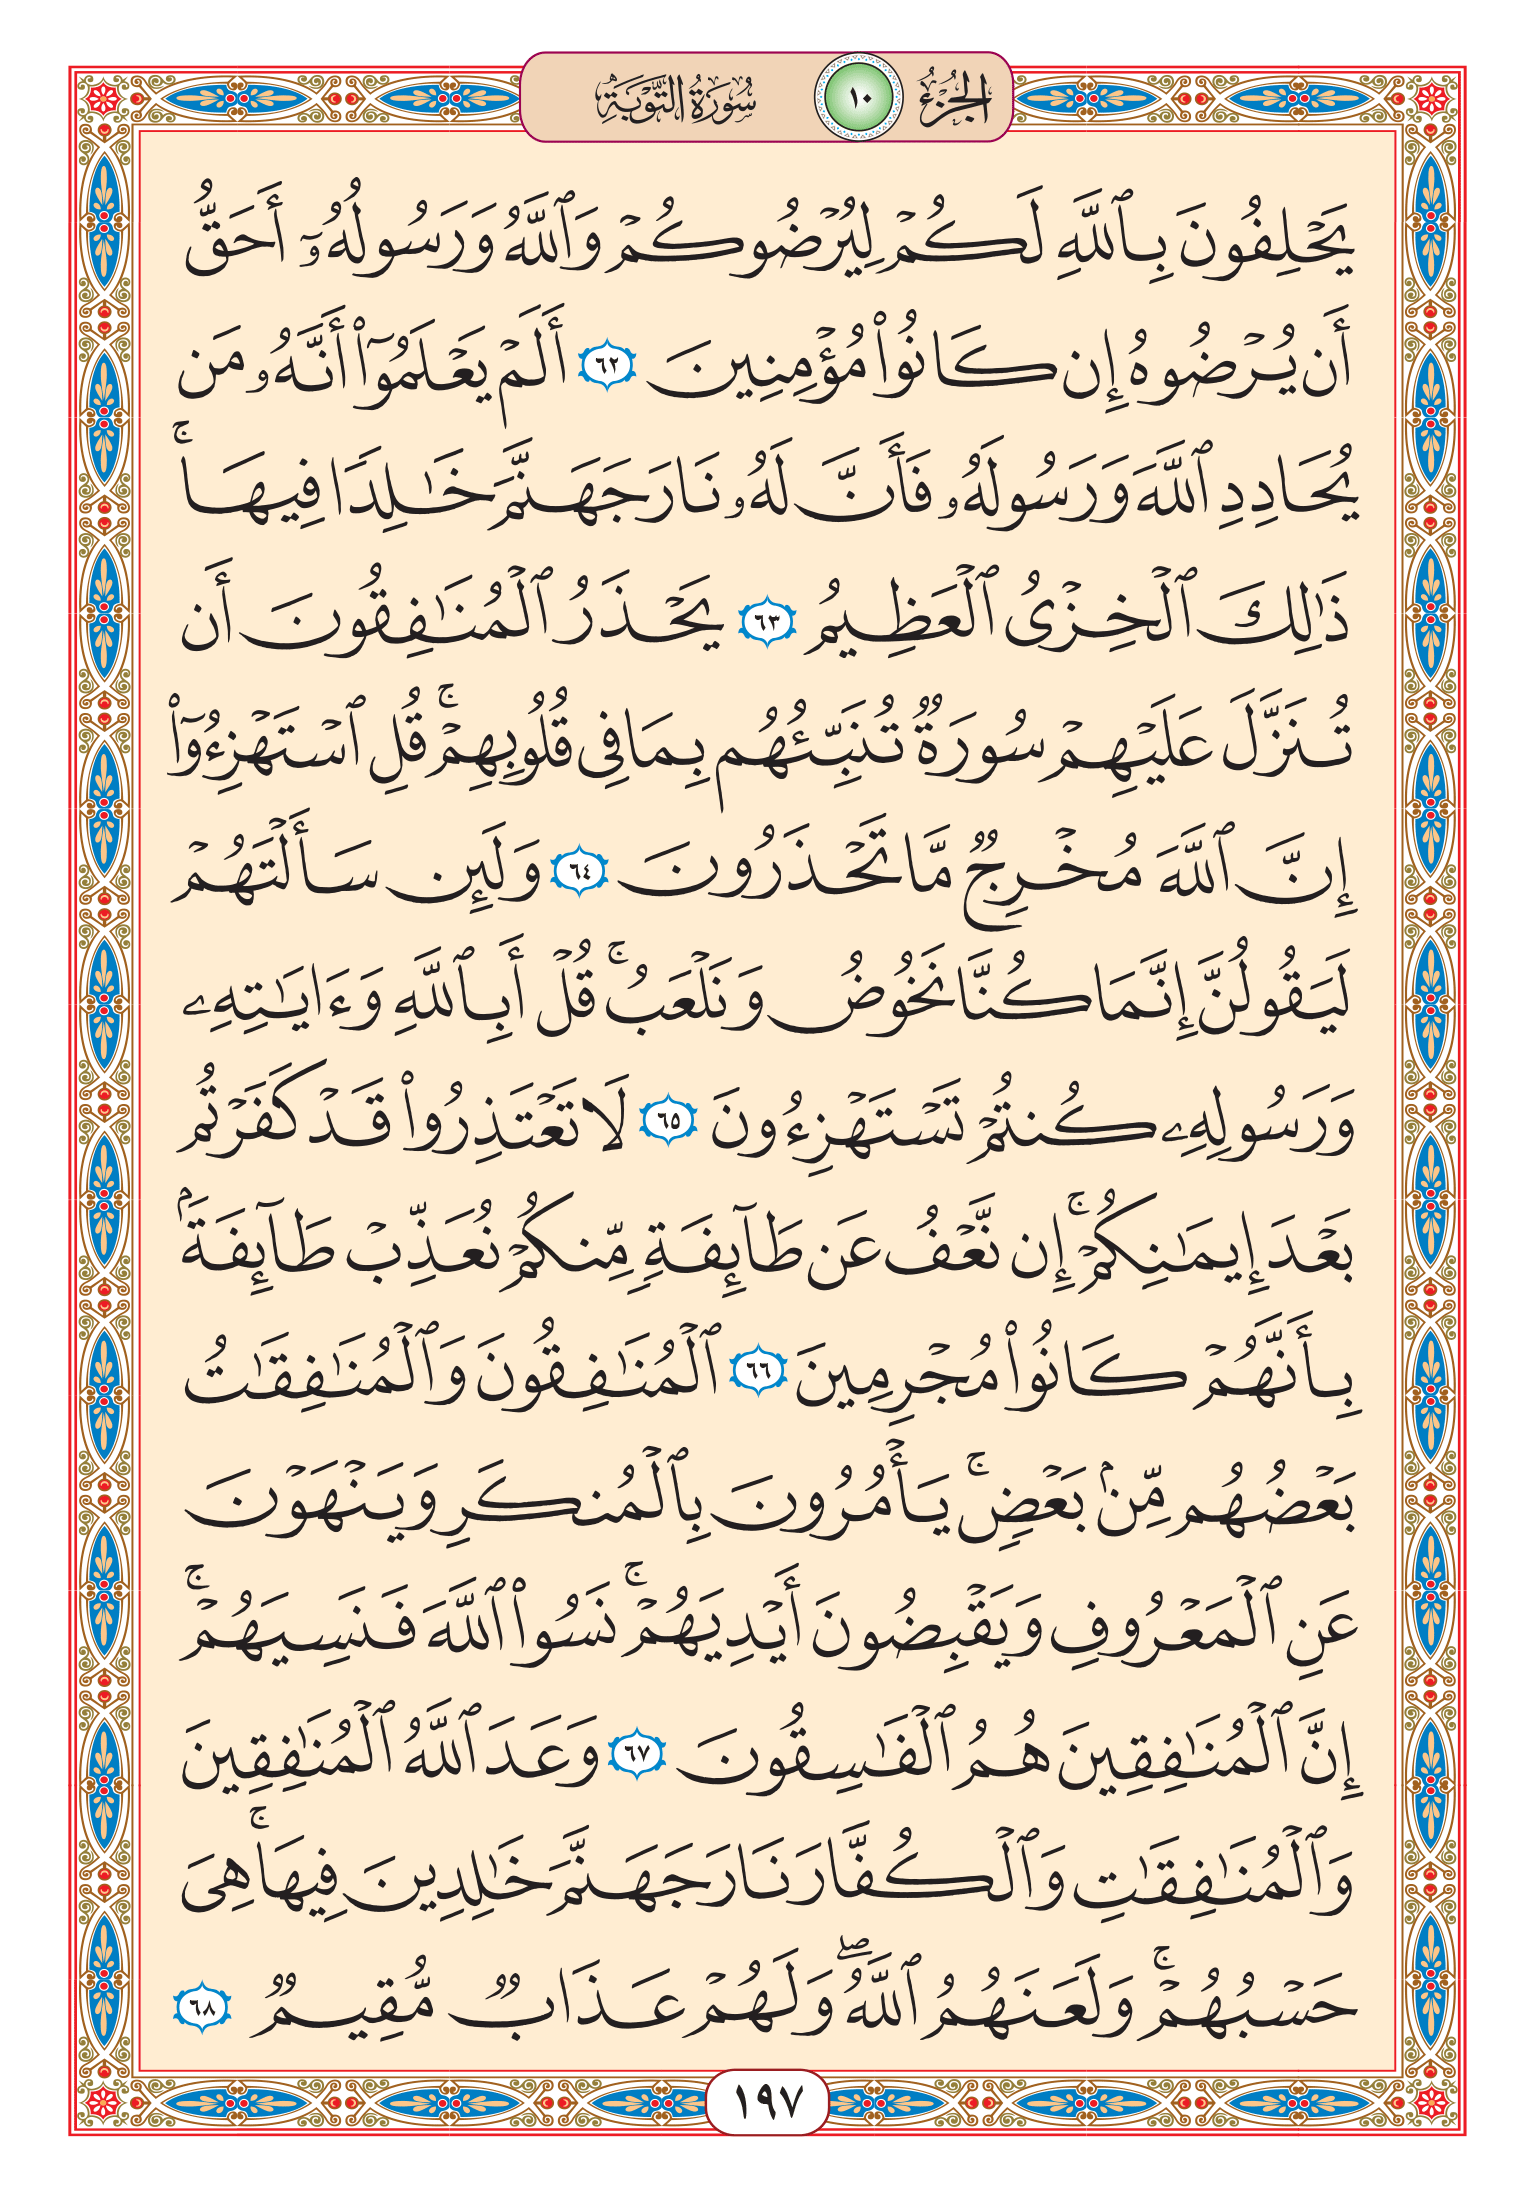 الجُزْءُ ١٠ سُورَةُ التَّوْبَةِ
يَحْلِفُونَ بِٱللَّهِ لَكُمْ لِيُرْضُوكُمْ وَٱللَّهُ وَرَسُولُهُۥٓ أَحَقُّ
أَن يُرْضُوهُ إِن كَانُوا۟ مُؤْمِنِينَ ٦٢ أَلَمْ يَعْلَمُوٓا۟ أَنَّهُۥ مَن
يُحَادِدِ ٱللَّهَ وَرَسُولَهُۥ فَأَنَّ لَهُۥ نَارَ جَهَنَّمَ خَٰلِدًا فِيهَا ۚ
ذَٰلِكَ ٱلْخِزْىُ ٱلْعَظِيمُ ٦٣ يَحْذَرُ ٱلْمُنَٰفِقُونَ أَن
تُنَزَّلَ عَلَيْهِمْ سُورَةٌ تُنَبِّئُهُم بِمَا فِى قُلُوبِهِمْ ۚ قُلِ ٱسْتَهْزِءُوٓا۟
إِنَّ ٱللَّهَ مُخْرِجٌ مَّا تَحْذَرُونَ ٦٤ وَلَئِن سَأَلْتَهُمْ
لَيَقُولُنَّ إِنَّمَا كُنَّا نَخُوضُ وَنَلْعَبُ ۚ قُلْ أَبِٱللَّهِ وَءَايَٰتِهِۦ
وَرَسُولِهِۦ كُنتُمْ تَسْتَهْزِءُونَ ٦٥ لَا تَعْتَذِرُوا۟ قَدْ كَفَرْتُم
بَعْدَ إِيمَٰنِكُمْ ۚ إِن نَّعْفُ عَن طَآئِفَةٍ مِّنكُمْ نُعَذِّبْ طَآئِفَةَۢ
بِأَنَّهُمْ كَانُوا۟ مُجْرِمِينَ ٦٦ ٱلْمُنَٰفِقُونَ وَٱلْمُنَٰفِقَٰتُ
بَعْضُهُم مِّنۢ بَعْضٍ ۚ يَأْمُرُونَ بِٱلْمُنكَرِ وَيَنْهَوْنَ
عَنِ ٱلْمَعْرُوفِ وَيَقْبِضُونَ أَيْدِيَهُمْ ۚ نَسُوا۟ ٱللَّهَ فَنَسِيَهُمْ ۚ
إِنَّ ٱلْمُنَٰفِقِينَ هُمُ ٱلْفَٰسِقُونَ ٦٧ وَعَدَ ٱللَّهُ ٱلْمُنَٰفِقِينَ
وَٱلْمُنَٰفِقَٰتِ وَٱلْكُفَّارَ نَارَ جَهَنَّمَ خَٰلِدِينَ فِيهَا ۚ هِىَ
حَسْبُهُمْ ۚ وَلَعَنَهُمُ ٱللَّهُ ۖ وَلَهُمْ عَذَابٌ مُّقِيمٌ ٦٨
١٩٧